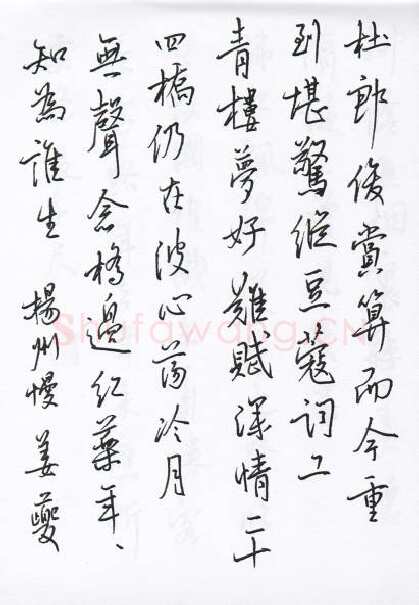 杜郎俊賞算而今重
到堪驚縱豆蔻詞工
青樓夢好難賦深情二十
四橋仍在波心蕩冷月
無聲念橋邊紅藥年、
知為誰生 揚州慢 姜夔
Shufawang.CN